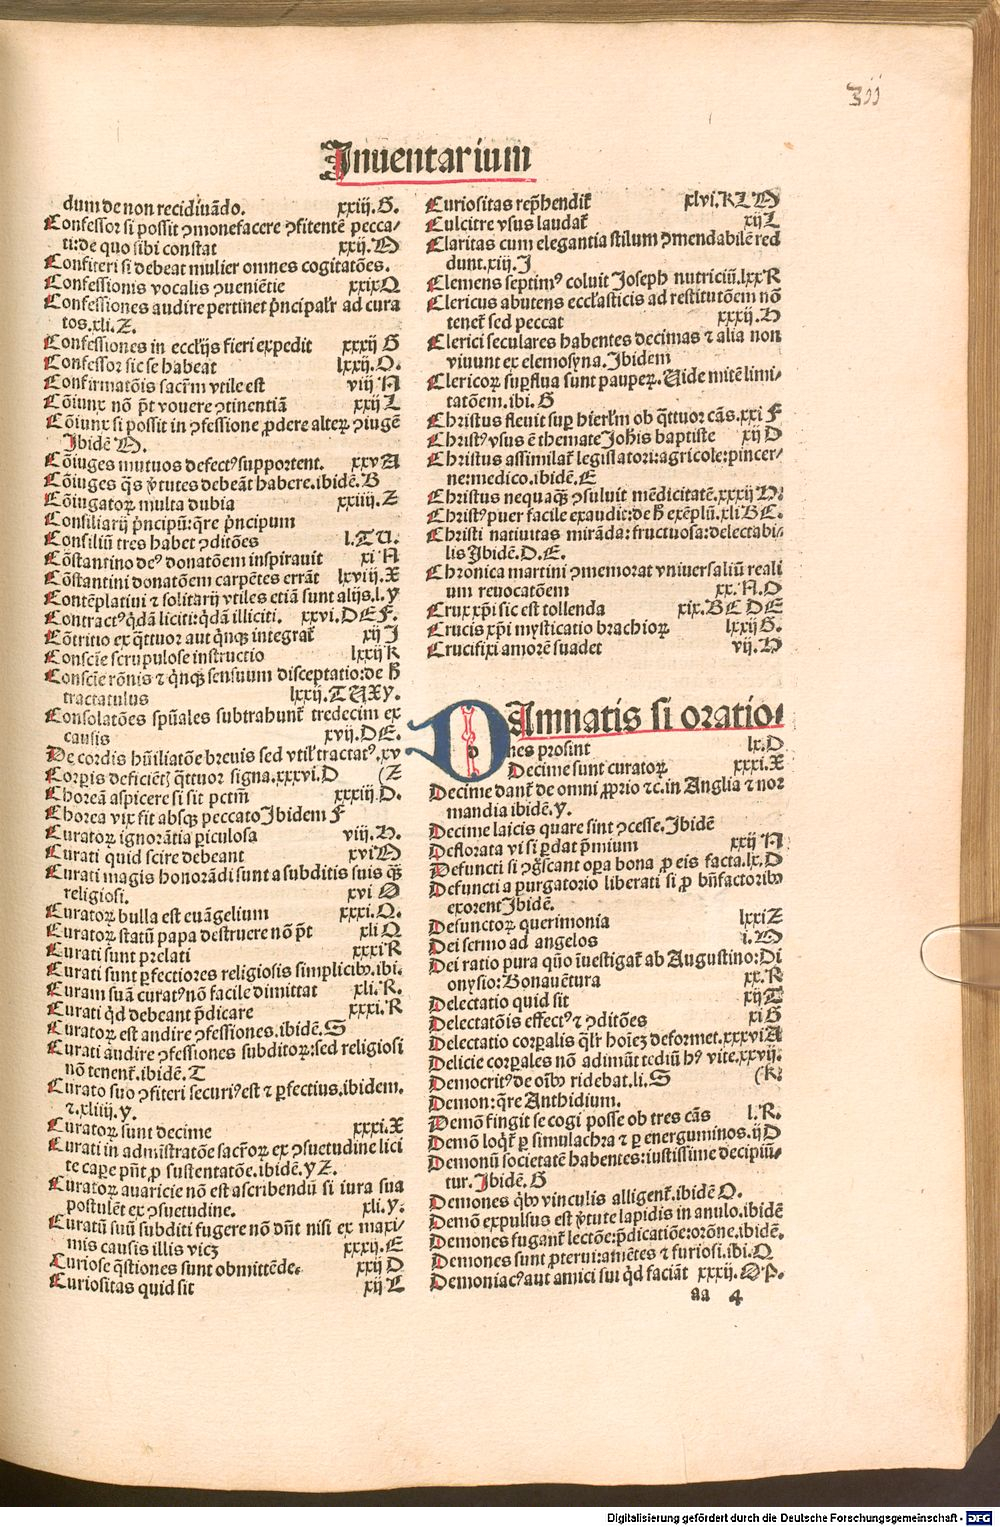 3ij
Inuentarium
dum de non recidiuãdo. xxiij.G.
Confessor si possit ꝯmonefacere ꝯfitentẽ pecca⸗
ti: de quo sibi constat xxij.M
Confiteri si debeat mulier omnes cogitatões.
Confessionis vocalis ꝯueniẽtie xxixQ
Confessiones audire pertinet p̃ncipalr̃ ad cura
tos.xli.Z.
Confessiones in eccl̃ijs fieri expedit xxxij G
Confessor sic se habeat lxxij.O.
Confirmatõis sacr̃m vtile est viij N
Cõiunx nõ p̃t vouere ꝯtinentiã xxij L
Cõiunx si possit in ꝯfessione ꝓdere alteꝝ ꝯiugẽ
Ibidẽ M.
Cõiuges mutuos defectꝰ supportent. xxv A
Cõiuges q̃s ṽtutes debeãt habere.ibidẽ.B
Cõiugatoꝝ multa dubia xxiiij.Z
Consiliarij p̃ncipũ: q̃re p̃ncipum
Consiliũ tres habet ꝯditões l.TU.
Cõstantino deꝰ donatõem inspirauit xi N
Cõstantini donatõem carpẽtes errãt lxviij.X
Contẽplatiui ⁊ solitarij vtiles etiã sunt alijs.l.y
Contractꝰ q̃dã liciti: q̃dã illiciti. xxvi.DEF.
Cõtritio ex q̃ttuor aut q̃nqꝫ integrat̃ xij I
Conscie scrupulose instructio lxxij K
Conscie rõnis ⁊ q̃nqꝫ sensuum disceptatio: de h̃
tractatulus lxxij.TUXy.
Consolatões sp̃uales subtrahunt̃ tredecim ex
causis xvij.DE.
De cordis hũiliatõe breuis sed vtil̃ tractatꝰ.xv
Corp̱is deficiẽt̃ q̃ttuor signa.xxxvi.D (Z
Choreã aspicere si sit pctm̃ xxxiij.D.
Chorea vix fit absqꝫ peccato Ibidem F
Curatoꝝ ignorãtia ꝑiculosa viij.H.
Curati quid scire debeant xviM
Curati magis honorãdi sunt a subditis suis qꝫ̃
religiosi. xvi Ø
Curatoꝝ bulla est euãgelium xxxi.Q.
Curatoꝝ statũ papa destruere nõ p̃t xli Q
Curati sunt prelati xxxi R
Curati sunt ꝑfectiores religiosis simplicibꝰ.ibi.
Curam suã curatꝰ nõ facile dimittat xli.R.
Curati q̃d debeant p̃dicare xxxi.R
Curatoꝝ est andire ꝯfessiones.ibidẽ.S
Curati audire ꝯfessiones subditoꝝ: sed religiosi
nõ tenent̃.ibidẽ.T
Curato suo ꝯfiteri securiꝰ est ⁊ ꝑfectius.ibidem.
⁊.xliiij.y.
Curatoꝝ sunt decime xxxi.X
Curati in admĩstratõe sacr̃oꝝ ex ꝯsuetudine lici
te caꝑe pñt ꝓ sustentatõe.ibidẽ.yZ.
Curatoꝝ auaricie nõ est ascribendũ si iura sua
postulẽt ex ꝯsuetudine. xli.y.
Curatũ suũ subditi fugere nõ dñt nisi ex maxi⸗
mis causis illis vicꝫ xxxij.E
Curiose q̃stiones sunt obmittẽde. xxij D
Curiositas quid sit xij L
Curiositas rep̃hendit̃ xlvi.KLM
Culcitre vsus laudat̃ xij L
Claritas cum elegantia stilum ꝯmendabilẽ red
dunt.xiij.I
Clemens septimꝰ coluit Ioseph nutriciũ.lxxR
Clericus abutens eccl̃asticis ad restitutõem nõ
tenet̃ sed peccat xxxij.H
Clerici seculares habentes decimas ⁊ alia non
viuunt ex elemosyna.Ibidem
Clericoꝝ suꝑflua sunt pauꝑꝝ. Uide mitẽ limi⸗
tatõem.ibi.G
Christus fleuit suꝑ hierl̃m ob q̃ttuor cãs.xxi F
Christꝰ vsus ẽ themate Joh̃is baptiste xij D
Christus assimilat̃ legislatori: agricole: pincer⸗
ne: medico.ibidẽ.E
Christus nequaqꝫ̃ ꝯsuluit mẽdicitatẽ.xxxij H.
Christꝰ puer facile exaudit: de h̃ exẽplũ.xli BC.
Christi natiuitas mirãda: fructuosa: delectabi⸗
lis Ibidẽ.D.E.
Chronica martini ꝯmemorat vniuersaliũ reali
um reuocatõem xx.N.O
Crux xp̃i sic est tollenda xix.BC DE
Crucis xp̃i mysticatio brachioꝝ lxxij G.
Crucifixi amorẽ suadet vij.H
DAmnatis si oratio⸗
nes prosint lx.D
Decime sunt curatoꝝ xxxi.X
Decime dant̃ de omni ꝓprio ⁊c. in Anglia ⁊ nor
mandia ibidẽ.y.
Decime laicis quare sint ꝯcesse.Ibidẽ
Deflorata vi si ꝑdat p̃mium xxij N
Defuncti si ꝯg̃scant oꝑa bona ꝓ eis facta.lx.D
Defuncti a purgatorio liberati si ꝓ bñfactoribꝰ
exorent Ibidẽ.
Defunctoꝝ querimonia lxxi Z
Dei sermo ad angelos i.M
Dei ratio pura quõ ĩuestigat̃ ab Augustino: Di
onysio: Bonauẽtura xx.K
Delectatio quid sit xij T
Delectatõis effectꝰ ⁊ ꝯditões xi G
Delectatio corꝑalis q̃lr̃ hoiez deformet.xxxvi A
Delicie corꝑales nõ adimũt tediũ hꝰ vite.xxvij.
Democritꝰ de oĩbꝰ ridebat.li.S (K.
Demon: q̃re Anthidium.
Demõ fingit se cogi posse ob tres cãs l.R.
Demõ loqt̃ ꝑ simulachra ⁊ ꝑ energuminos.ij D
Demonũ societatẽ habentes: iustissime decipiũ⸗
tur. Ibidẽ.G
Demones qꝰ vinculis alligent̃.ibidẽ O.
Demõ expulsus est ṽtute lapidis in anulo.ibidẽ
Demones fugant̃ lectõe: p̃dicatiõe: orõne.ibidẽ.
Demones sunt ꝓterui: amẽtes ⁊ furiosi.ibi.Q
Demoniacꝰ aut amici sui q̃d faciãt xxxij.ØP.
aa 4
Digitalisierung gefördert durch die Deutsche Forschungsgemeinschaft - DFG